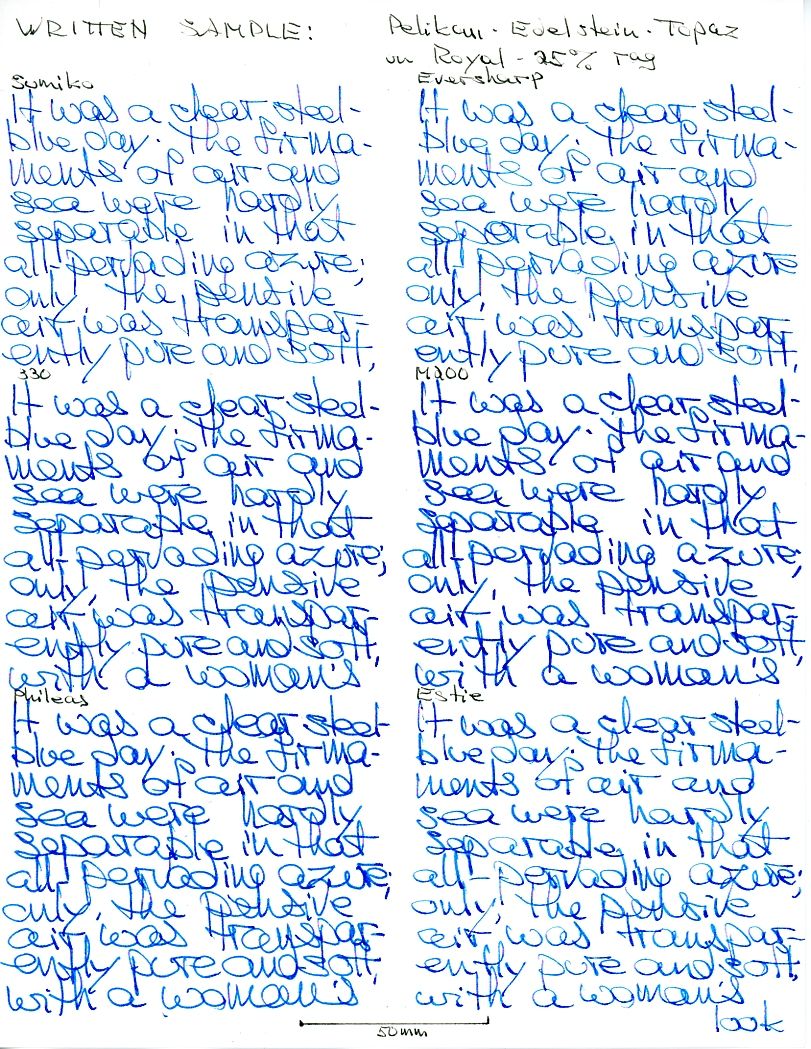 WRITTEN SAMPLE: Pelikan - Edelstein - Topaz
on Royal - 25% rag
Sumiko
It was a clear steel-
blue day. The firma-
ments of air and
sea were hardly
separable in that
all-pervading azure;
only, the pensive
air was transpar-
ently pure and soft,
Eversharp
It was a clear steel-
blue day. The firma-
ments of air and
sea were hardly
separable in that
all-pervading azure
only, the pensive
air was transpar-
ently pure and soft,
330
It was a clear steel-
blue day. The firma-
ments of air and
sea were hardly
separable in that
all-pervading azure;
only, the pensive
air was transpar-
ently pure and soft,
with a woman's
M200
It was a clear steel-
blue day. The firma-
ments of air and
sea were hardly
separable in that
all-pervading azure;
only, the pensive
air was transpar-
ently pure and soft,
with a woman's
Phileas
It was a clear steel-
blue day. The firma-
ments of air and
sea were hardly
separable in that
all-pervading azure;
only, the pensive
air was transpar-
ently pure and soft,
with a woman's
Estie
It was a clear steel-
blue day. The firma-
ments of air and
sea were hardly
separable in that
all-pervading azure;
only, the pensive
air was transpar-
ently pure and soft,
with a woman's
look
50mm